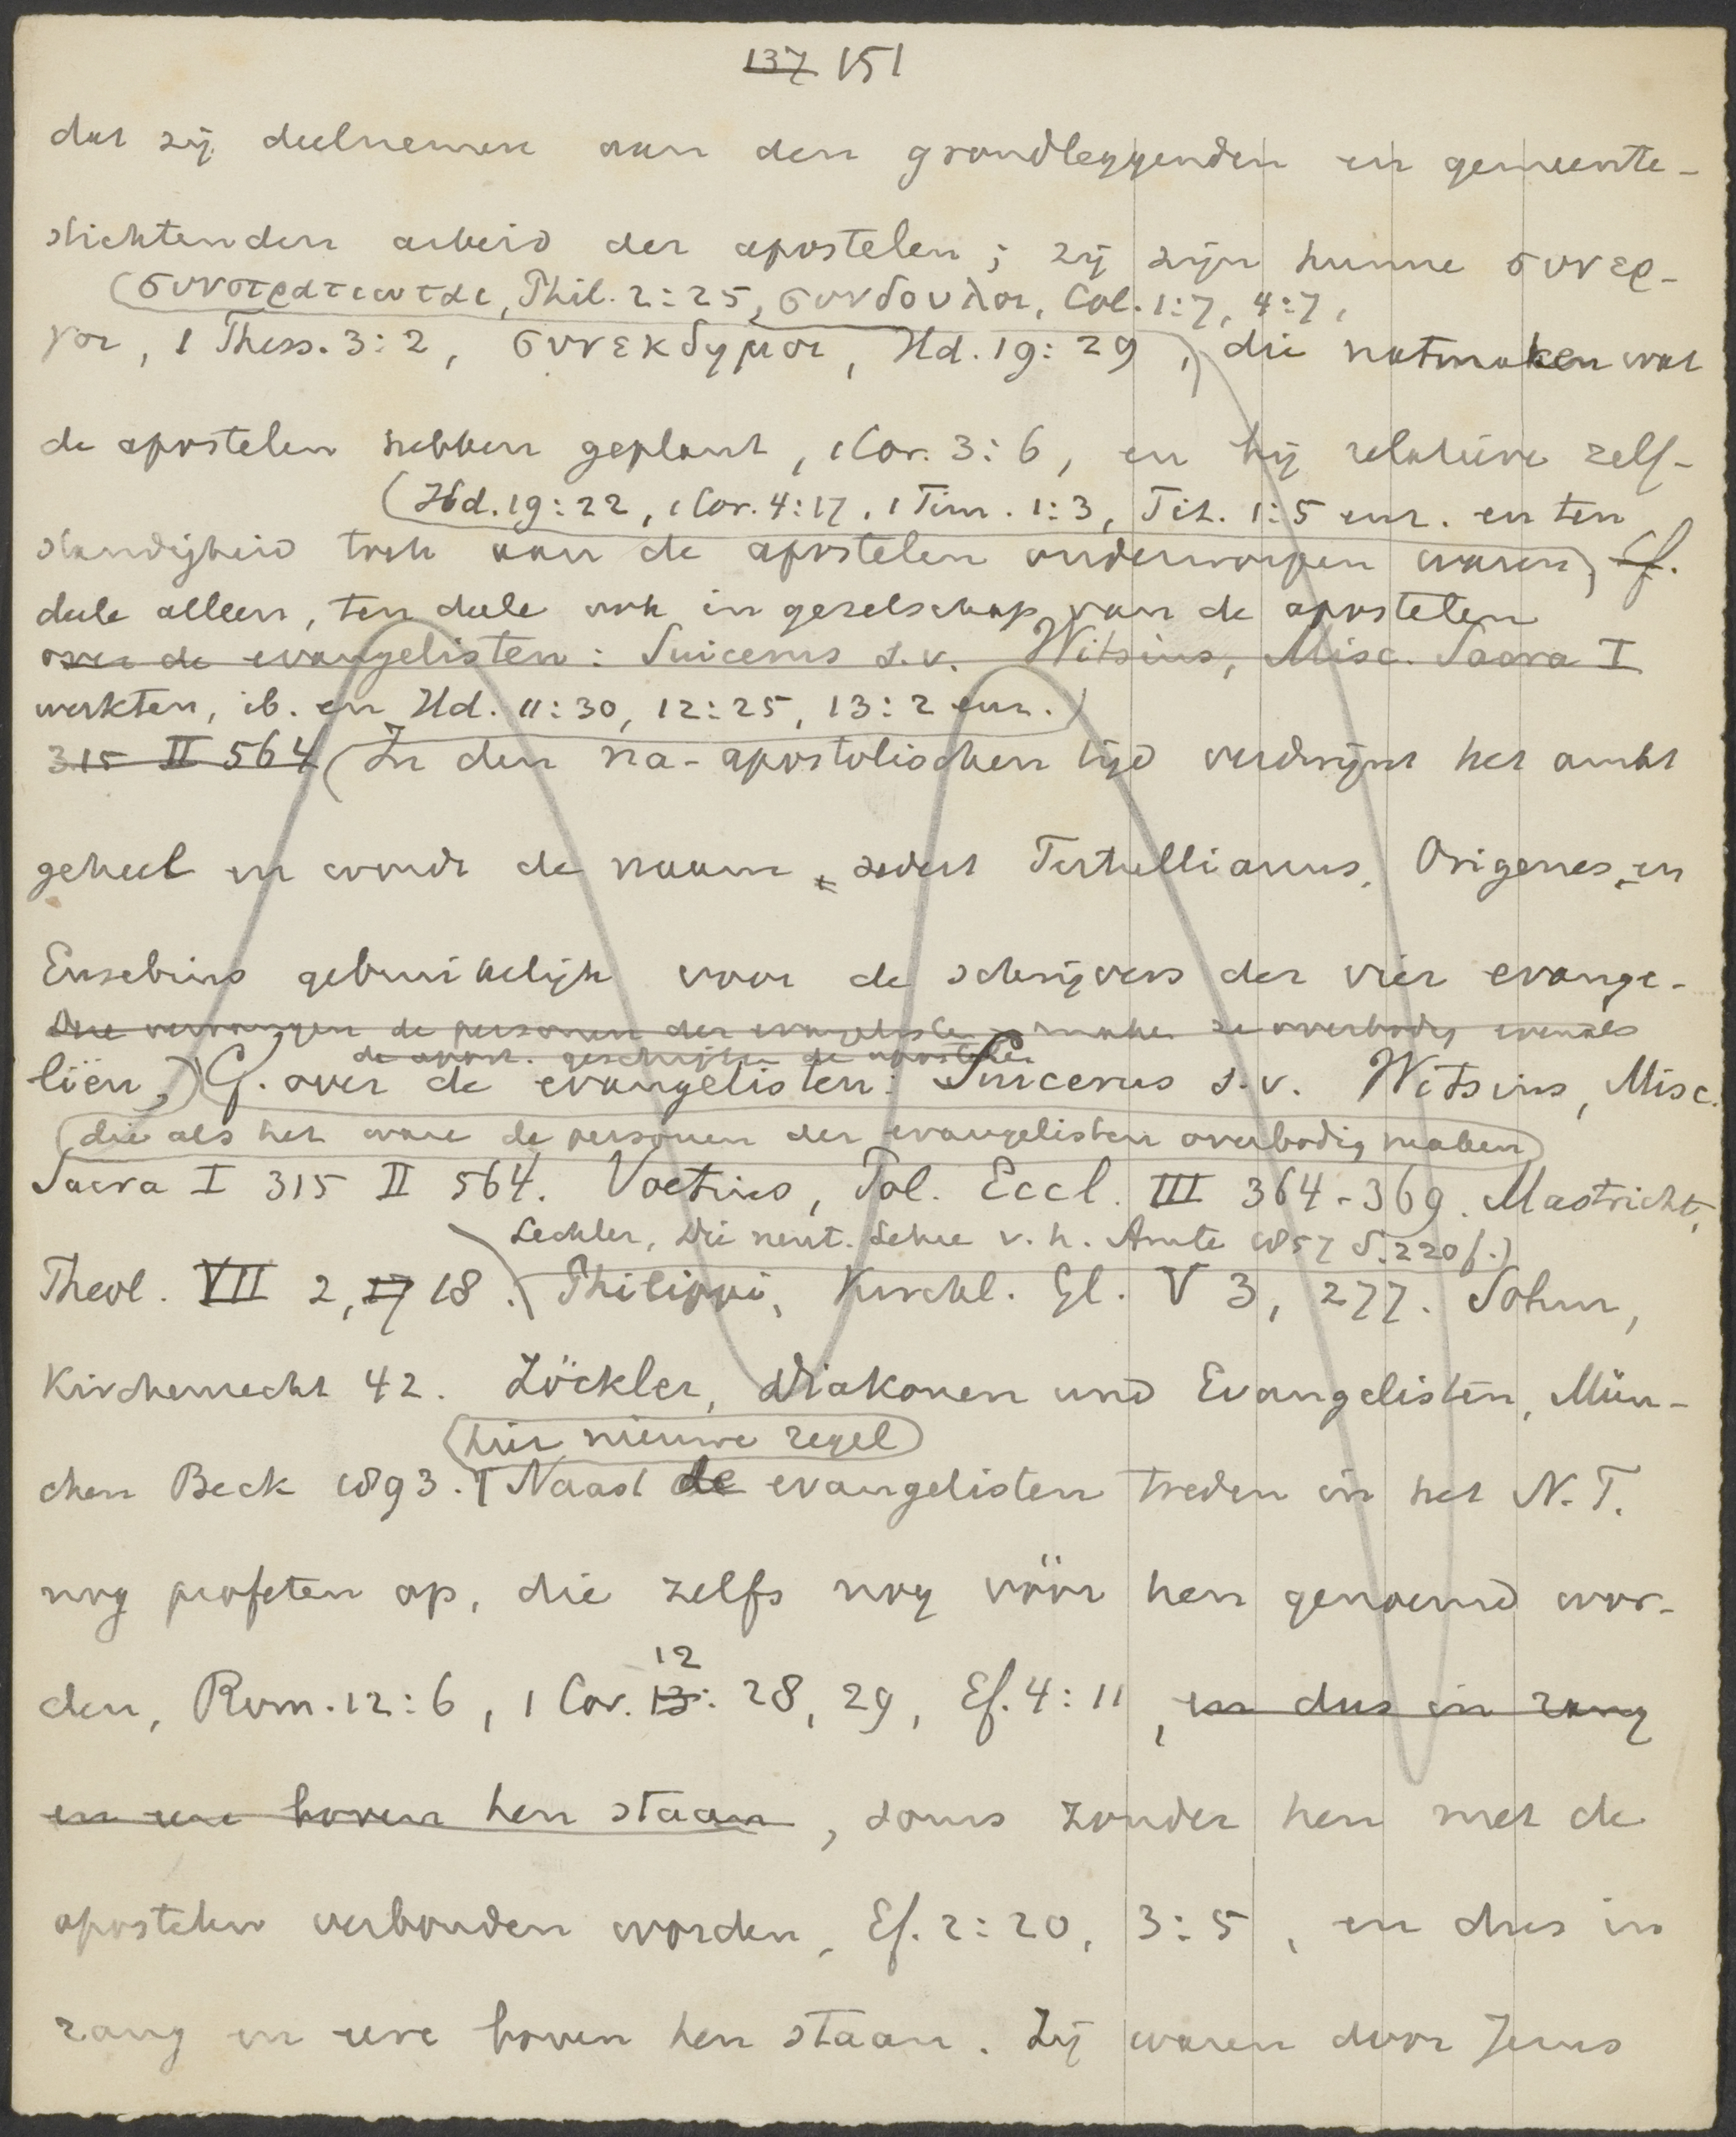 137 151
dat zij deelnemen aan den grondleggenden en gemeente-
stichtenden arbeid der apostelen; zij zijn hunne συνερ-
(συνστρατιωται, Phil. 2:25, συνδουλοι, Col. 1:7, 4:7,
γοι, 1 Thess. 3:2, συνεκδημοι, Hd. 19:29), die natmaken wat
de apostelen hebben geplant, 1 Cor. 3:6, en bij relatieve zelf-
(Hd. 19:22, 1 Cor. 4:17, 1 Tim. 1:3, Tit. 1:5 enz. en ten
standigheid toch aan de apostelen onderworpen waren, Cf.
deele alleen, ten deele ook in gezelschap van de apostelen
over de evangelisten: Suicerus s.v. Witsius, Misc. Sacra I
werkten, ib. en Hd. 11:30, 12:25, 13:2 enz.)
315 II 564 (In den na-apostolischen tijd verdwijnt het ambt
geheel en wordt de naam sedert Tertullianus, Origenes, en
Eusebius gebruikelijk voor de schrijvers der vier evange-
die vervangen de personen der evangelisten, maken ze overbodig evenals
de apost. geschriften de apostelen
liën,) Cf. over de evangelisten: Suicerus s.v. Witsius, Misc.
(die als het ware de personen der evangelisten overbodig maken)
Sacra I 315 II 564. Voetius, Pol. Eccl. III 364-369. Mastricht,
Lechler, Die neut. Lehre v. h. Amte 1857 S. 220 f.)
Theol. VII 2, 17 18. Philippi, Kirchl. Gl. V 3, 277. Sohm,
Kirchenrecht 42. Zöckler, Diakonen und Evangelisten, Mün-
(hier nieuwe regel)
chen Beck 1893. Naast de evangelisten treden in het N.T.
nog profeten op, die zelfs nog vóór hen genoemd wor-
12
den, Rom. 12:6, 1 Cor. 13: 28, 29, Ef. 4:11, en dus in rang
en eere boven hen staan, soms zonder hen met de
apostelen verbonden worden, Ef. 2:20, 3:5, en dus in
rang en eere boven hen staan. Zij waren door Jezus